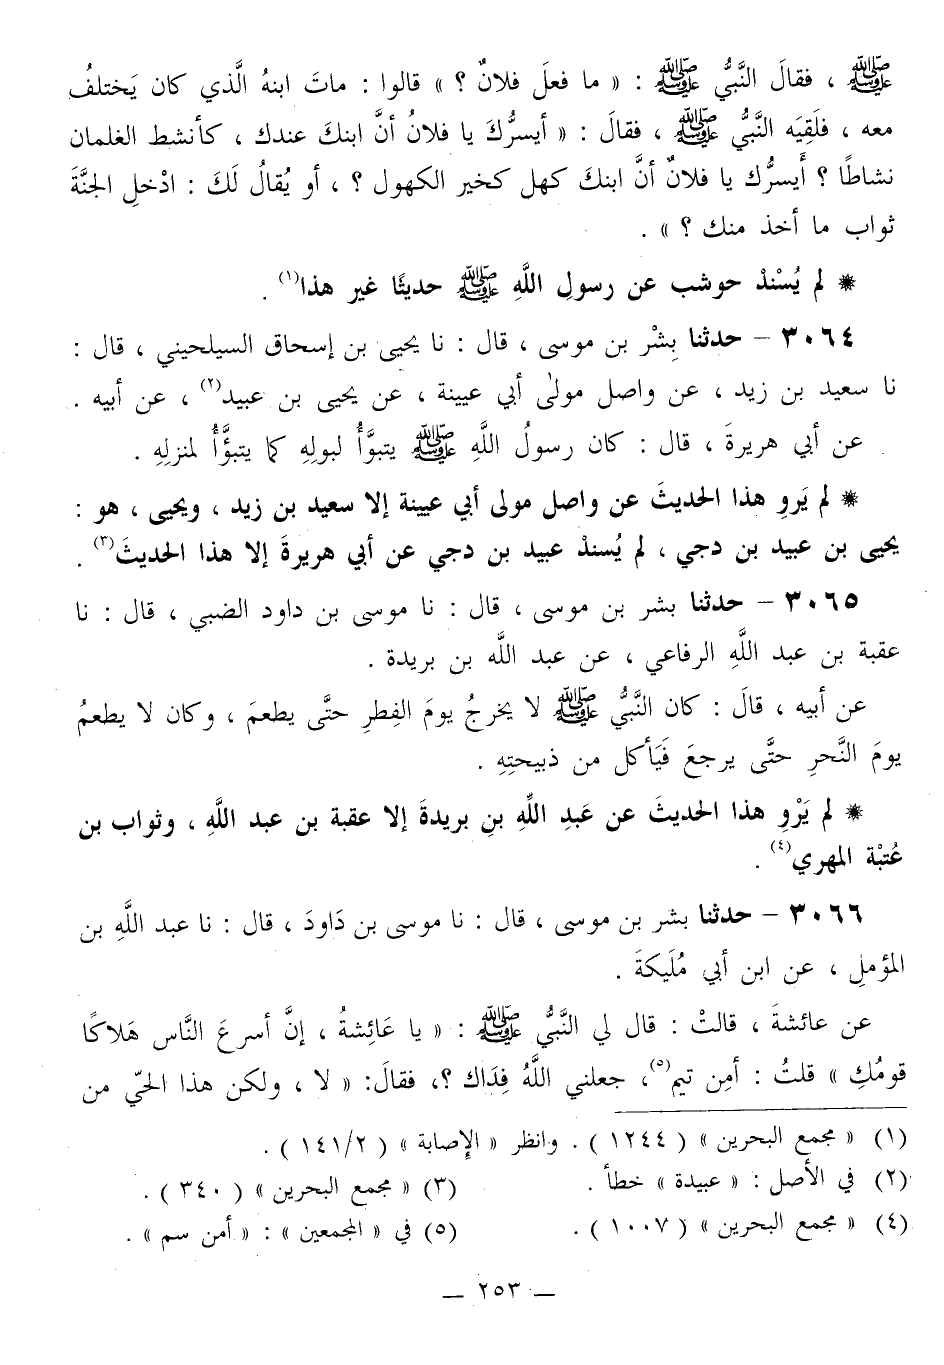 ﷺ ، فقالَ النَّبيُّ ﷺ : « ما فعلَ فلانٌ ؟ » قالوا : ماتَ ابنهُ الَّذي كان يَختلفُ
معه ، فلَقِيَه النَّبيُّ ﷺ ، فقالَ : « أيسرُّكَ يا فلانُ أنَّ ابنكَ عندك ، كأنشط الغلمان
نشاطًا ؟ أَيسرُّك يا فلانٌ أنَّ ابنكَ كهل كخير الكهول ؟ ، أو يُقالُ لَكَ : ادْخلِ الجنَّةَ
ثواب ما أخذ منك ؟ » .
* لم يُسْنِدْ حوشب عن رسولِ اللَّهِ ﷺ حديثًا غير هذا(١) .
٣٠٦٤ – حدثنا بِشْر بن موسى ، قال : نا يحيى بن إسحاق السيلحيني ، قال :
نا سعيد بن زيد ، عن واصل مولىٰ أبي عيينة ، عن يحيى بن عبيد(٢) ، عن أبيه .
عن أبي هريرةَ ، قال : كان رسولُ اللَّهِ ﷺ يتبوَّأُ لبولِهِ كما يتبوَّأُ لمنزلِهِ .
* لم يَروِ هذا الحديثَ عن واصل مولى أبي عيينة إلا سعيد بن زيد ، ويحيى ، هو :
يحيى بن عبيد بن دجي ، لم يُسندْ عبيد بن دجي عن أبي هريرةَ إلا هذا الحديثَ(٣) .
٣٠٦٥ – حدثنا بشر بن موسى ، قال : نا موسى بن داود الضبي ، قال : نا
عقبة بن عبد اللَّهِ الرفاعي ، عن عبد اللَّه بن بريدة .
عن أبيه ، قالَ : كان النَّبيُّ ﷺ لا يخرجُ يومَ الفِطرِ حتَّى يطعمَ ، وكان لا يطعمُ
يومَ النَّحرِ حتَّى يرجعَ فَيَأكل من ذبيحتِهِ .
* لم يَرْوِ هذا الحديثَ عن عَبدِ اللَّهِ بنِ بريدةَ إلا عقبة بن عبد اللَّهِ ، وثواب بن
عُتبْة المهري(٤) .
٣٠٦٦ – حدثنا بشر بن موسى ، قال : نا موسى بن دَاودَ ، قال : نا عبد اللَّهِ بن
المؤملِ ، عن ابن أبي مُلَيكةَ .
عن عائشةَ ، قالتْ : قال لي النَّبيُّ ﷺ : « يا عَائِشةُ ، إنَّ أسرعَ النَّاس هَلاكًا
قومُكِ » قلتُ : أمِن تيم(٥)، جعلني اللَّهُ فِدَاك ؟، فقالَ: « لا ، ولكن هذا الحيّ من
(١) « مجمع البحرين » ( ١٢٤٤ ) . وانظر « الإصابة » ( ١٤١/٢ ) .
(٢) في الأصل : « عبيدة » خطأ . (٣) « مجمع البحرين » ( ٣٤٠ ) .
(٤) « مجمع البحرين » ( ١٠٠٧ ) . (٥) في « المجمعين » : « أمن سم » .
— ٢٥٣ —